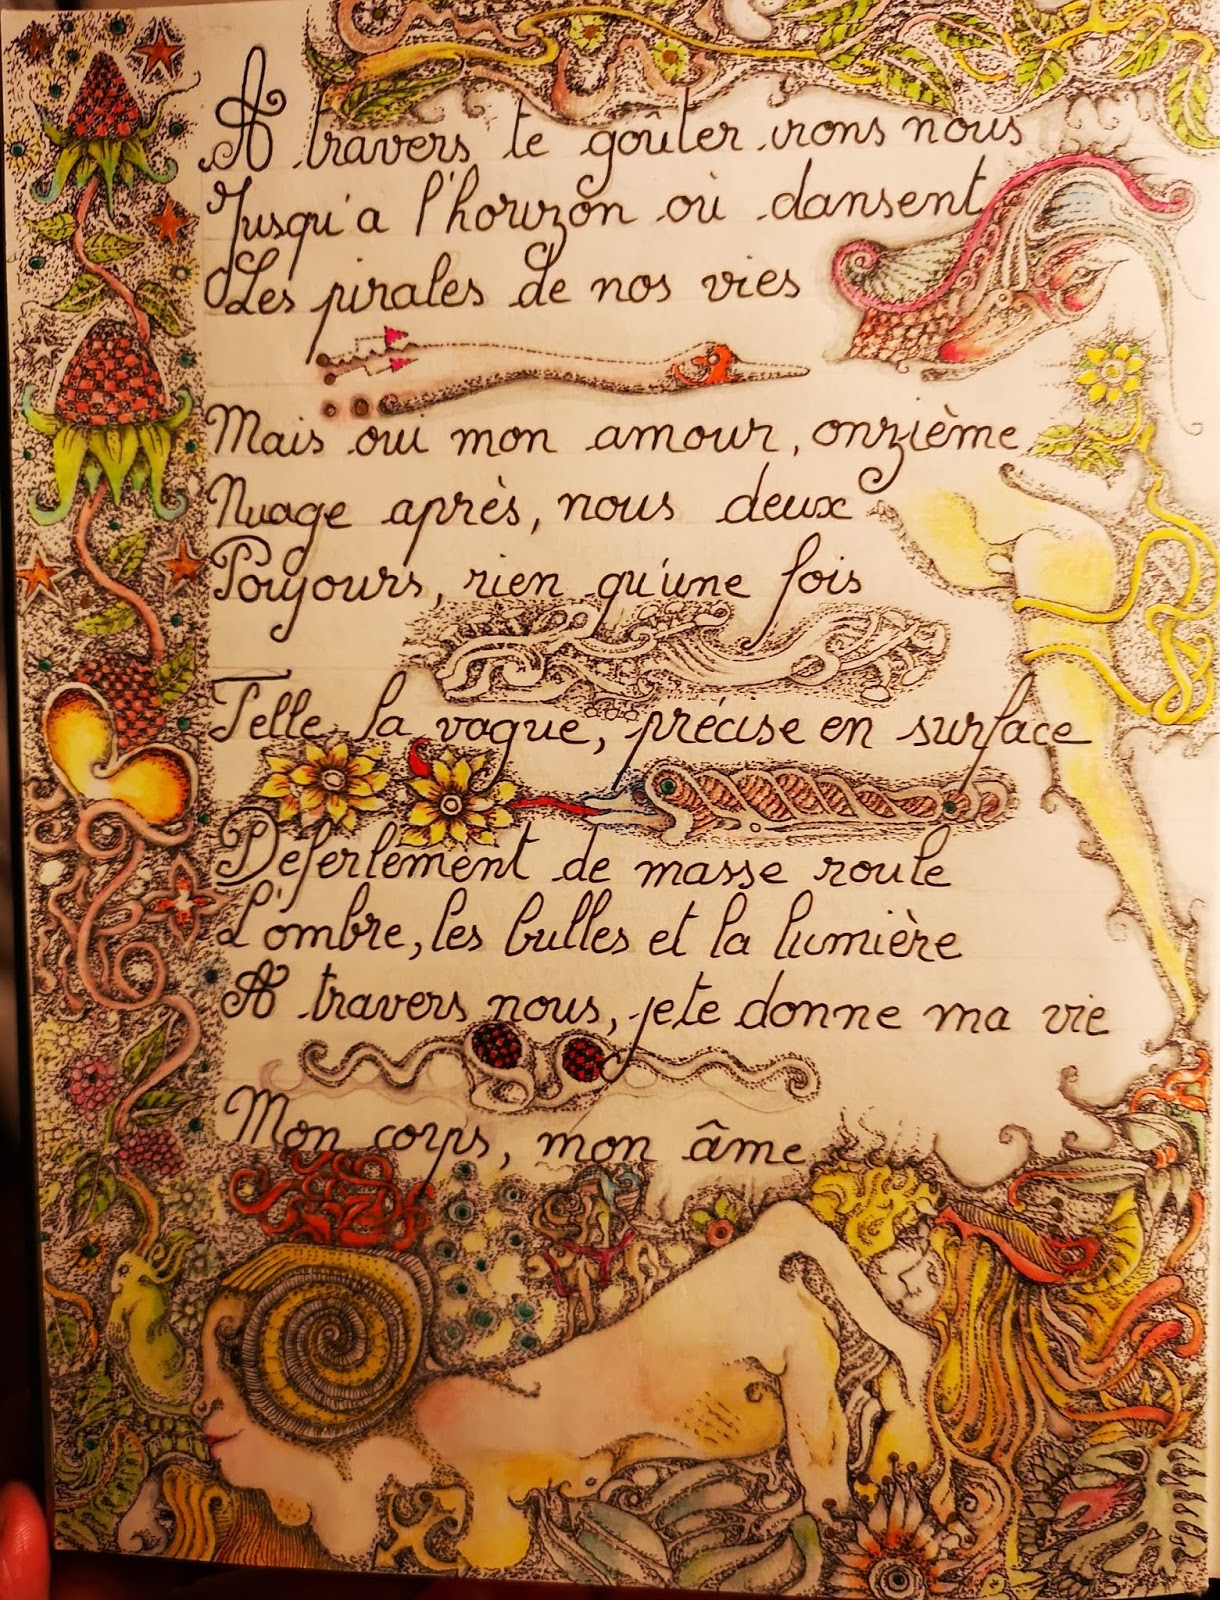 A travers te goûter irons nous
Jusqu'a l'horizon où dansent
Les pirales de nos vies
Mais oui mon amour, onzième
Nuage après, nous deux
Toujours, rien qu'une fois
Telle la vague, précise en surface
Déferlement de masse roule
L'ombre, les bulles et la lumière
A travers nous, je te donne ma vie
Mon corps, mon âme